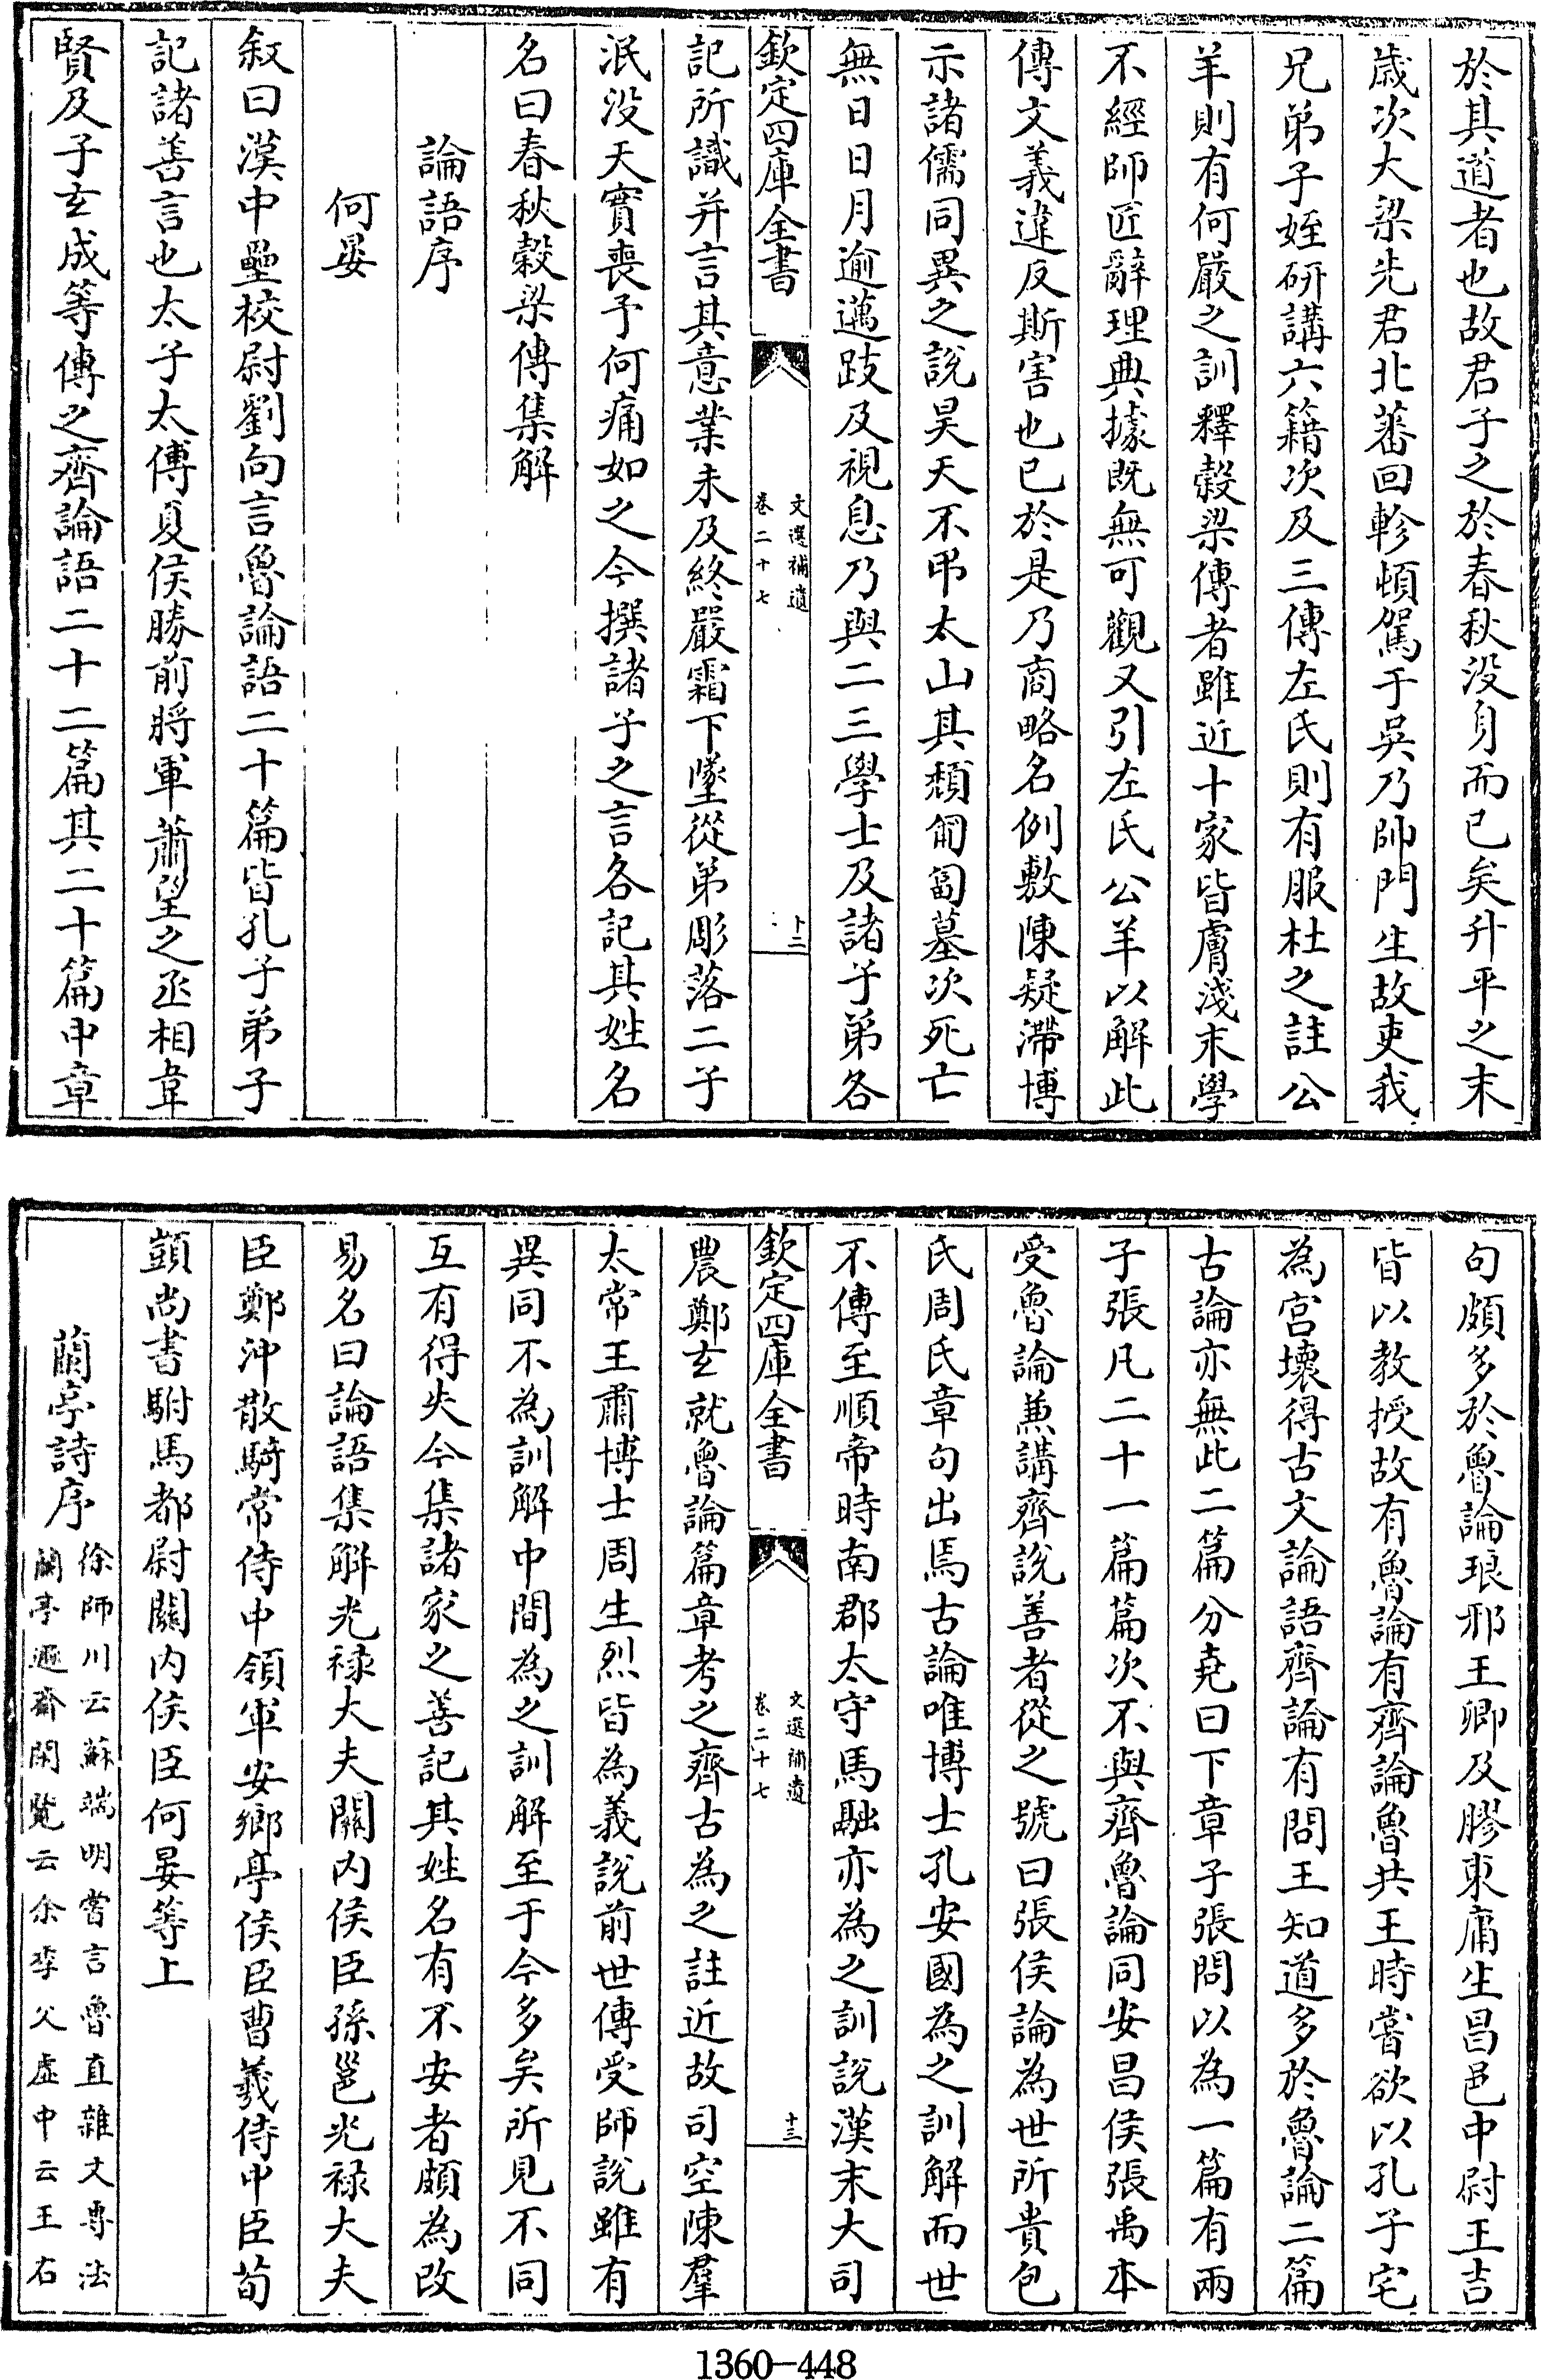 於其道者也故君子之於春秋没身而已矣升平之末
歲次大梁先君北蕃回軫頓駕于吳乃帥門生故吏我
兄弟子姪研講六籍次及三傳左氏則有服杜之註公
羊則有何嚴之訓釋穀梁傳者雖近十家皆膚淺末學
不經師匠辭理典據既無可觀又引左氏公羊以解此
傳文義違反斯害也已於是乃商略名例敷陳疑滯博
示諸儒同異之說昊天不弔太山其頹匍匐墓次死亡
無日日月逾邁跂及視息乃與二三學士及諸子弟各
欽定四庫全書
文選補遺
卷二十七
十二
記所識并言其意業未及終嚴霜下墜從弟彫落二子
泯没天實喪予何痛如之今撰諸子之言各記其姓名
名曰春秋穀梁傳集解
論語序
何晏
叙曰漢中壘校尉劉向言魯論語二十篇皆孔子弟子
記諸善言也太子太傅夏侯勝前將軍蕭望之丞相韋
賢及子玄成等傳之齊論語二十二篇其二十篇中章
句頗多於魯論琅邪王卿及膠東庸生昌邑中尉王吉
皆以教授故有魯論有齊論魯共王時嘗欲以孔子宅
為宫壞得古文論語齊論有問王知道多於魯論二篇
古論亦無此二篇分堯曰下章子張問以為一篇有兩
子張凡二十一篇篇次不與齊魯論同安昌侯張禹本
受魯論兼講齊說善者從之號曰張侯論為世所貴包
氏周氏章句出焉古論唯博士孔安國為之訓解而世
不傳至順帝時南郡太守馬融亦為之訓說漢末大司
欽定四庫全書
文選補遺
卷二十七
十三
農鄭玄就魯論篇章考之齊古為之註近故司空陳羣
太常王肅博士周生烈皆為義說前世傳受師說雖有
異同不為訓解中間為之訓解至于今多矣所見不同
互有得失今集諸家之善記其姓名有不安者頗為改
易名曰論語集解光禄大夫關内侯臣孫邕光禄大夫
臣鄭沖散騎常侍中領軍安鄉亭侯臣曹羲侍中臣荀
顗尚書駙馬都尉關内侯臣何晏等上
蘭亭詩序
徐師川云蘇端明嘗言魯直雜文專法
蘭亭遯齋閑覽云余季父虚中云王右
1360-448